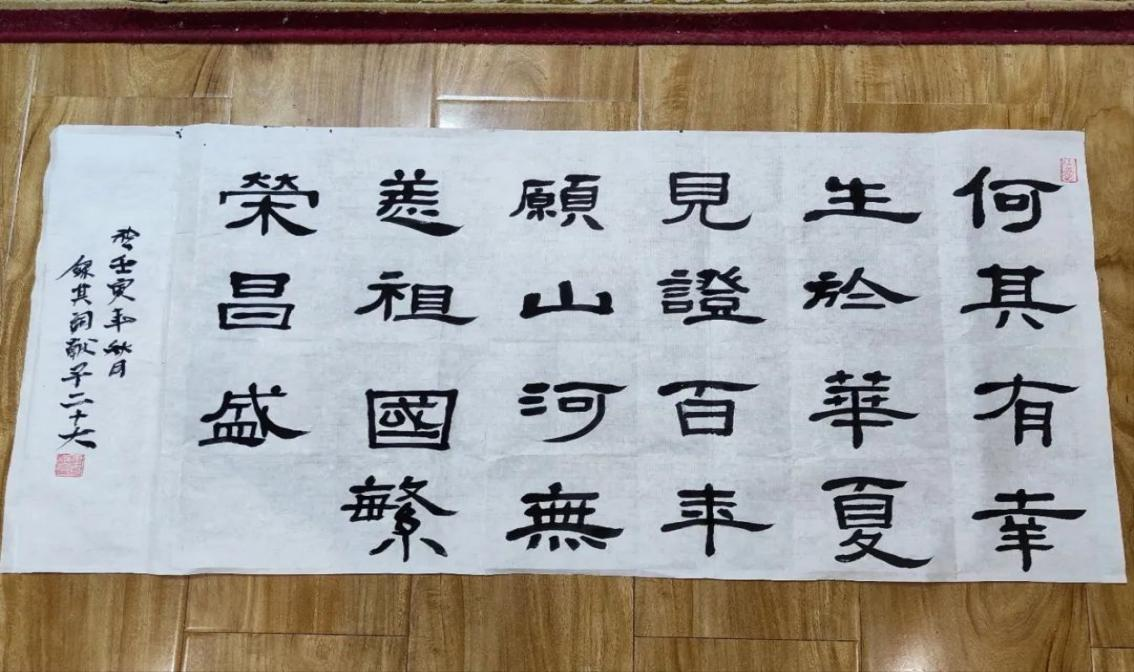 何其有幸
生於華夏
見證百年
願山河無
恙祖國繁
榮昌盛
壬寅年秋月
錄其詞獻予二十大